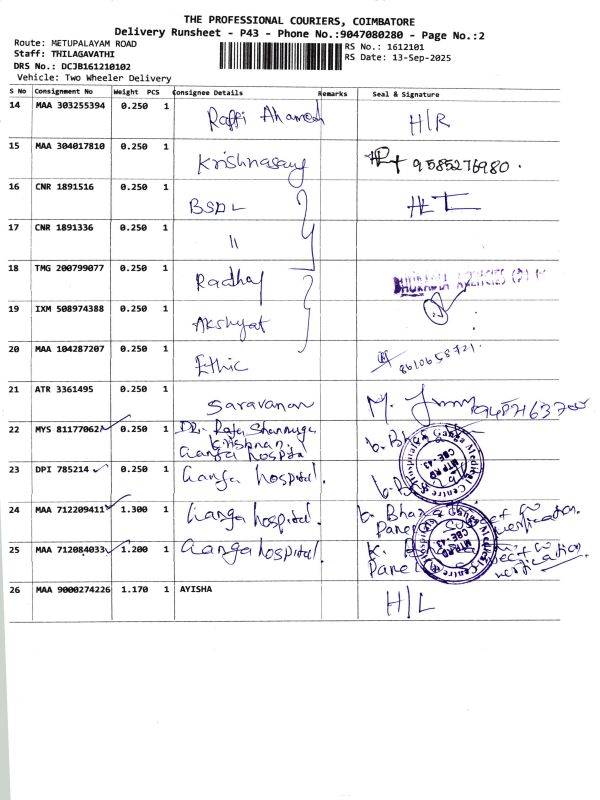 THE PROFESSIONAL COURIERS, COIMBATORE
Delivery Runsheet - P43 - Phone No.:9047080280 - Page No.:2
Route: METUPALAYAM ROAD
RS No.: 1612101
Staff: THILAGAVATHI
RS Date: 13-Sep-2025
DRS No.: DCJB161210102
Vehicle: Two Wheeler Delivery
S No Consignment No Weight PCS Consignee Details Remarks Seal & Signature
14 MAA 303255394 0.250 1 Raffi Ahamed H/R
15 MAA 304017810 0.250 1 Krishnasamy 9585276980.
16 CNR 1891516 0.250 1 BSDL
17 CNR 1891336 0.250 1 "
18 TMG 200799077 0.250 1 AGENCIES
19 IXM 508974388 0.250 1 Akshyat
20 MAA 104287207 0.250 1 Ethic 8610658721
21 ATR 3361495 0.250 1 Saravanan M.
22 MYS 81177062 0.250 1 Dr. Raja Shanmuga
Krishnan.
Ganga hospital
23 DPI 785214 0.250 1 Ganga hospital.
24 MAA 712209411 1.300 1 Ganga hospital.
verification.
25 MAA 712084033 1.200 1 Ganga hospital.
verification.
26 MAA 9000274226 1.170 1 AYISHA H/L